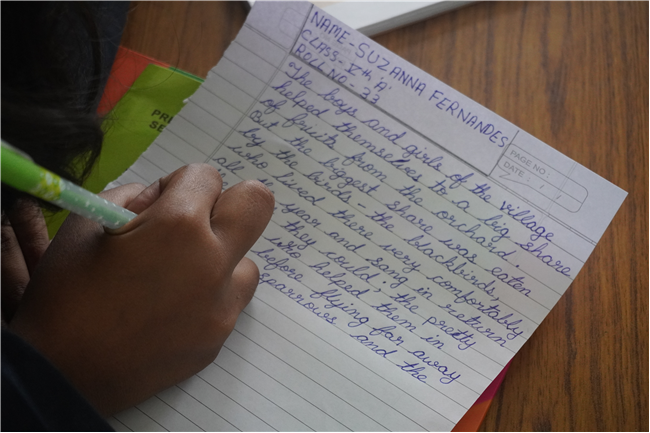 NAME-SUZANNA FERNANDES
CLASS- Vth 'A'
ROLL NO- 33
PAGE NO:
DATE:
The boys and girls of the village
helped themselves to a big share
of fruits from the orchard.
But the biggest share was eaten
by the birds - the blackbirds,
who lived there very comfortably
all year and sang in return
they could, the pretty
who helped them in
before flying far away
sparrows and the
PRI
SE